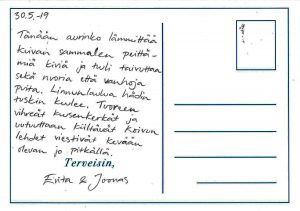 30.5.-19
Tänään aurinko lämmittää
kuivan sammalen peittä-
miä kiviä ja tuuli taivuttaa
sekä nuoria että vanhoja
puita. Linnunlaulua hädin
tuskin kuulee. Tuoreen
vihreät kuusenkerkät ja
uutuuttaan kiiltävät koivun
lehdet viestivät kevään
olevan jo pitkällä.
Terveisin,
Eiita & Joonas